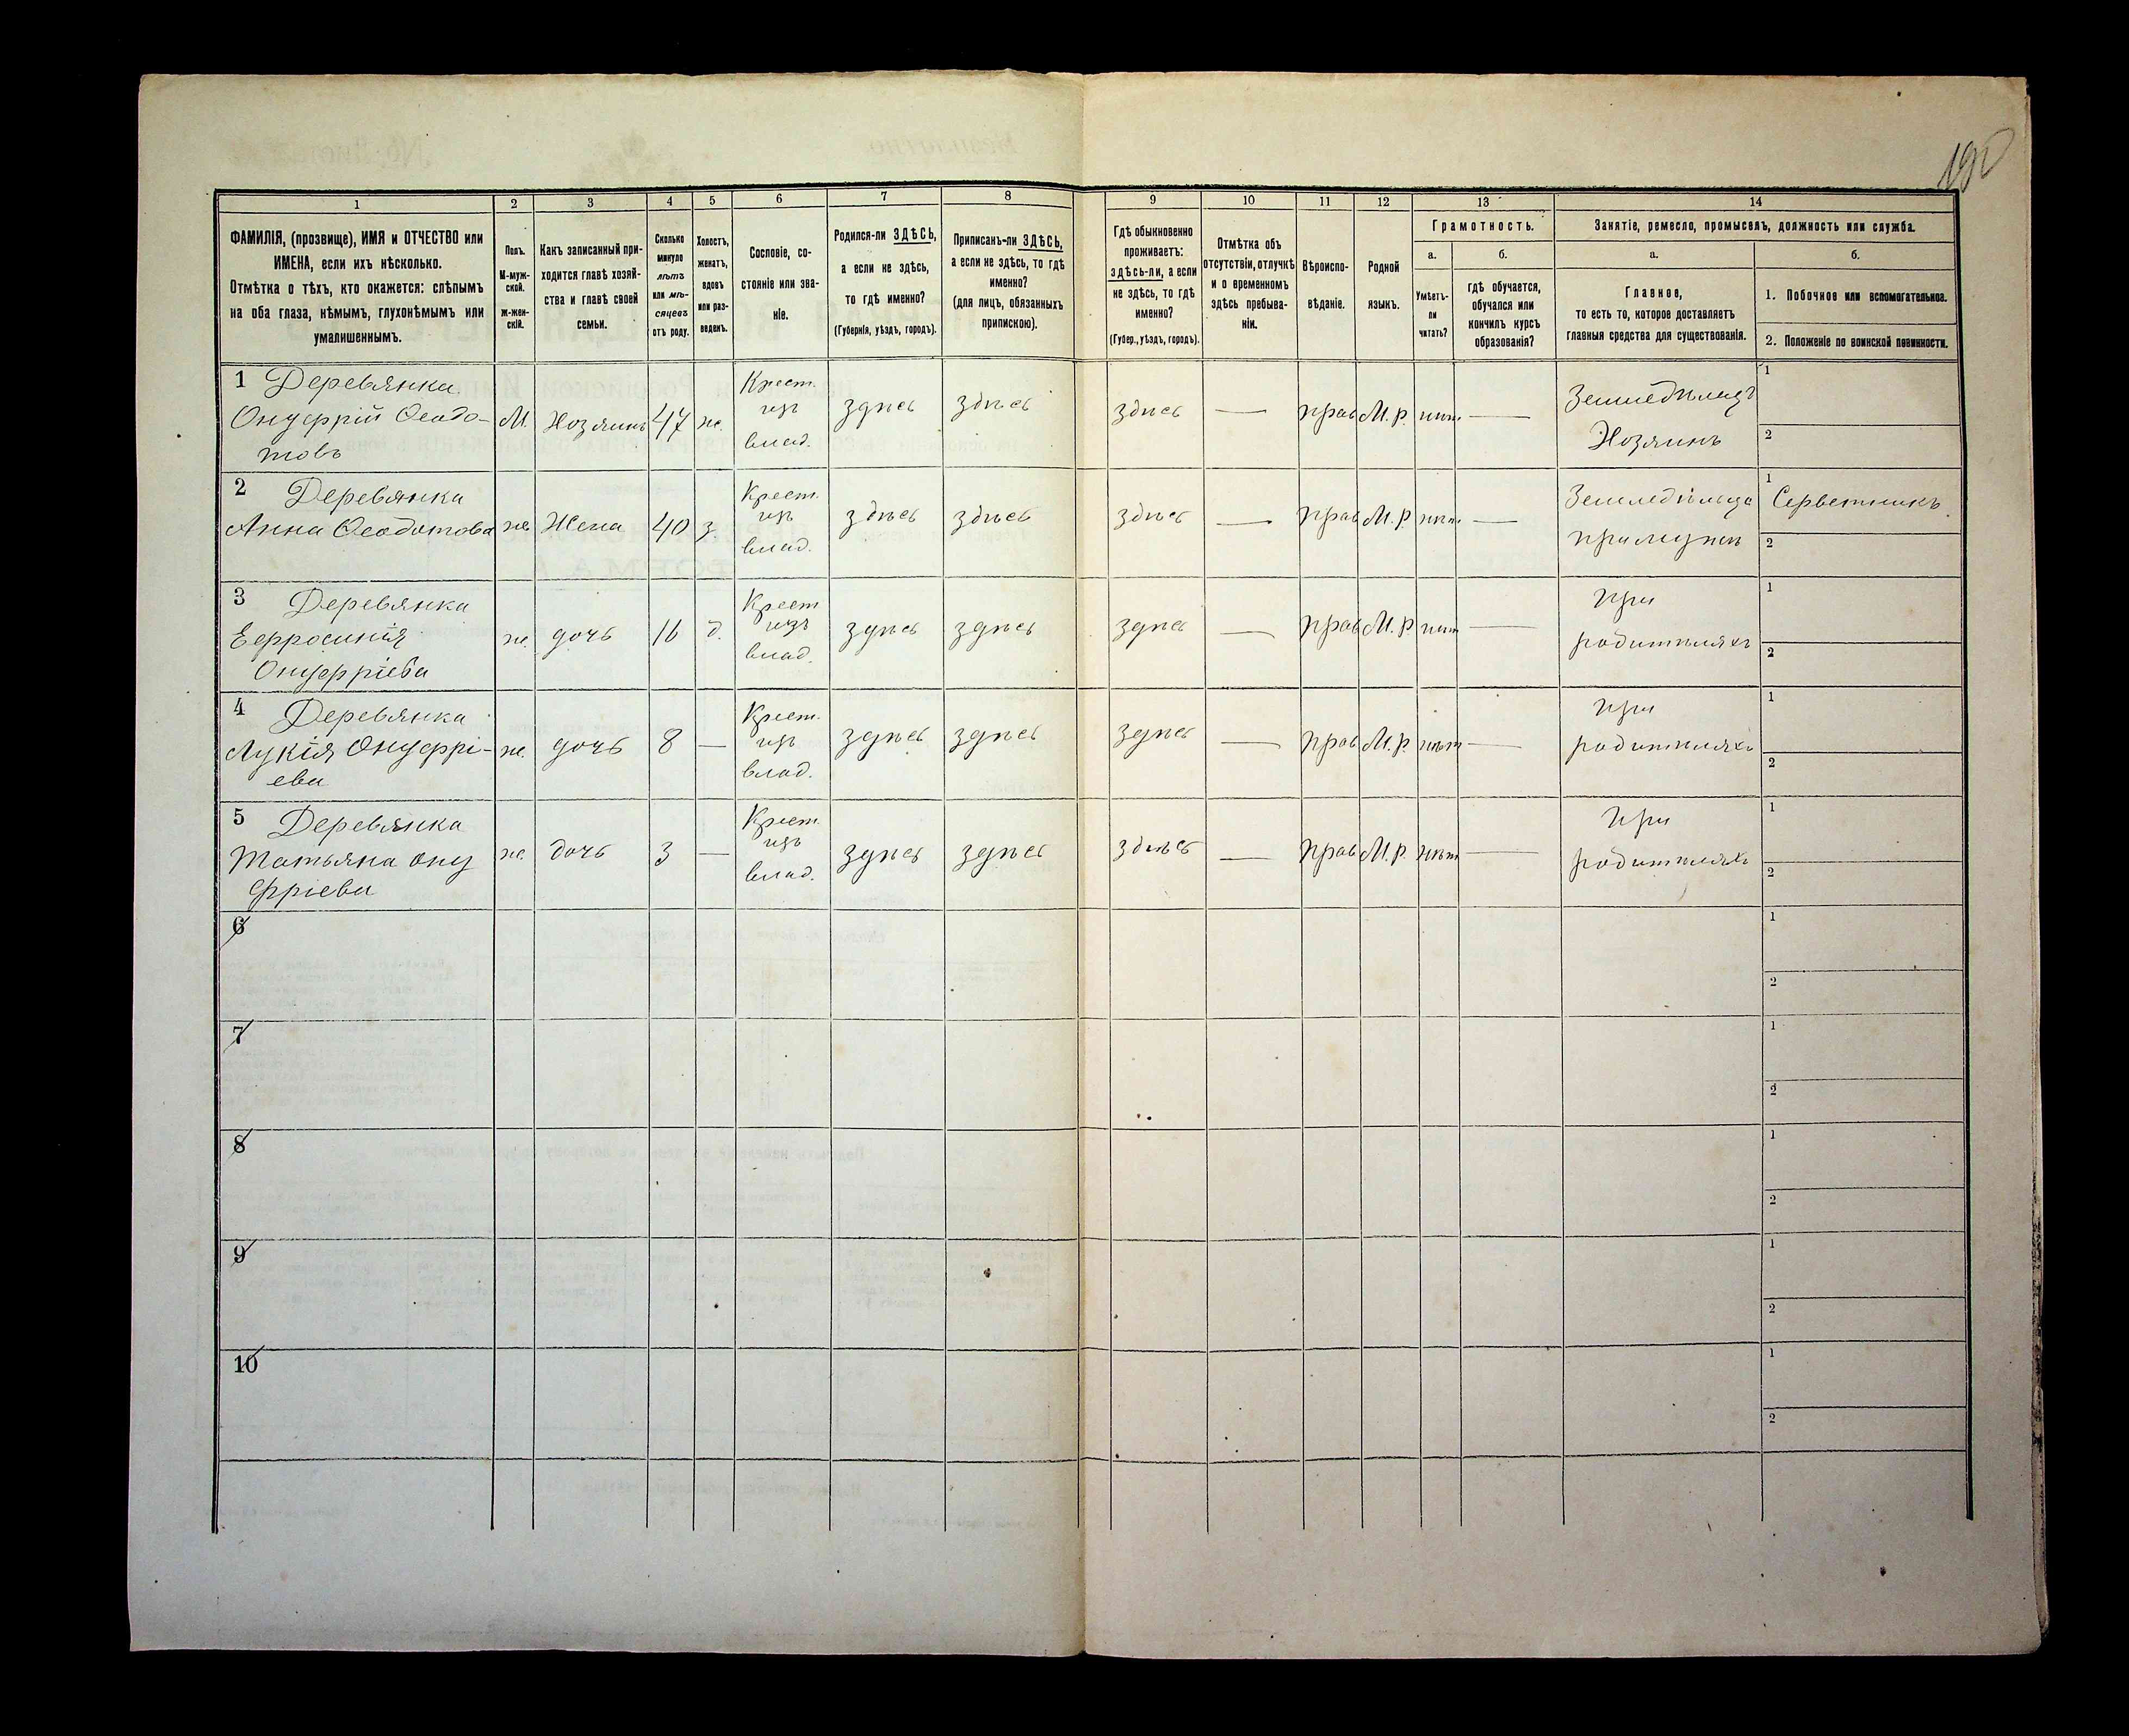 190
1 2 3 4 5 6 7 8 9 10 11 12 13 14
ФАМИЛІЯ, (прозвище), ИМЯ и ОТЧЕСТВО или
ИМЕНА, если ихъ нѣсколько.
Отмѣтка о тѣхъ, кто окажется: слѣпымъ
на оба глаза, нѣмымъ, глухонѣмымъ или
умалишеннымъ.
Полъ.
М-муж-
ской.
Ж-жен-
скій.
Какъ записанный при-
ходится главѣ хозяй-
ства и главѣ своей
семьи.
Сколько
минуло
лѣтъ
или мѣ-
сяцевъ
отъ роду.
Холостъ,
женатъ,
вдовъ
или раз-
веденъ.
Сословіе, со-
стояніе или зва-
ніе.
Родился-ли ЗДѢСЬ,
а если не здѣсь,
то гдѣ именно?
(Губернія, уѣздъ, городъ).
Приписанъ-ли ЗДѢСЬ,
а если не здѣсь, то гдѣ
именно?
(для лицъ, обязанныхъ
припискою).
Гдѣ обыкновенно
проживаетъ:
здѣсь-ли, а если
не здѣсь, то гдѣ
именно?
(Губер., уѣздъ, городъ).
Отмѣтка объ
отсутствіи, отлучкѣ
и о временномъ
здѣсь пребыва-
ніи.
Вѣроиспо-
вѣданіе.
Родной
языкъ.
Грамотность.
а.
Умѣетъ-
ли
читать?
б.
гдѣ обучается,
обучался или
кончилъ курсъ
образованія?
Занятіе, ремесло, промыселъ, должность или служба.
а.
Главное,
то есть то, которое доставляетъ
главныя средства для существованія.
б.
1. Побочное или вспомогательное.
2. Положеніе по воинской повинности.
1 Деревянка
Онуфрій Ѳеодо-
товъ
М. Хозяинъ 47 ж.
Крест.
изъ
влад.
здѣсь здѣсь здѣсь — прав М.р. нѣт —
Земледѣлецъ
Хозяинъ
1
2
2 Деревянка
Анна Ѳеодотова
ж. Жена 40 з.
Крест.
изъ
влад.
здѣсь здѣсь здѣсь — прав М.р. нѣт —
Земледѣльца
при мужѣ
1
2
3 Деревянка
Ефросинія
Онуфріева
ж. дочь 16 д.
Крест
изъ
влад.
здѣсь здѣсь здѣсь — прав М.р нѣт —
При
родителяхъ
1
2
4 Деревянка
Лукія Онуфрі-
ева
ж. дочь 8 —
Крест.
изъ
влад.
здѣсь здѣсь здѣсь — прав М.р. нѣт —
При
родителяхъ
1
2
5 Деревянка
Татьяна Ону
фріева
ж. дочь 3 —
Крест.
изъ
влад.
здѣсь здѣсь здѣсь — прав М.р. нѣт —
При
родителяхъ
1
2
6
1
2
7
1
2
8
1
2
9
1
2
10
1
2